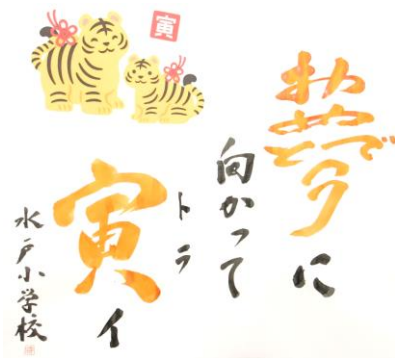 夢に
向かって
トラ
寅イ
水戸小学校
寅